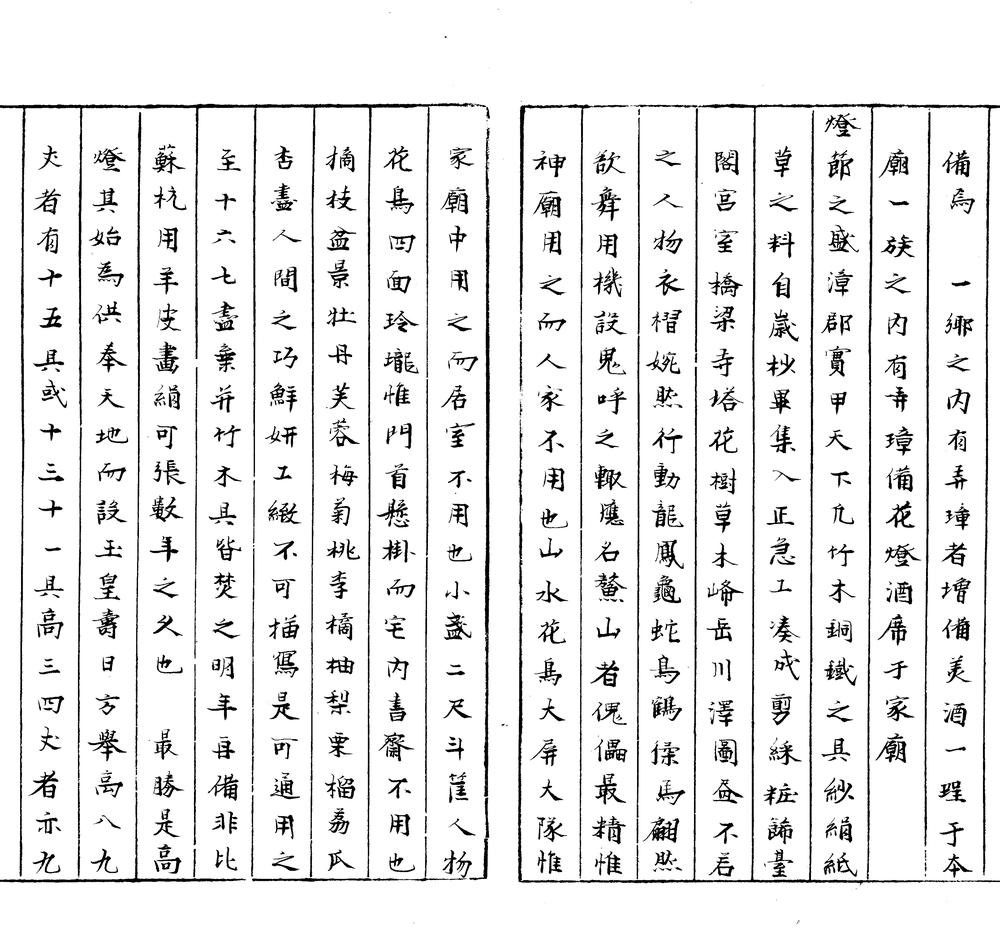 備焉　一鄉之内有弄璋者增備美酒一埕于本
廟一族之内有弄璋備花燈酒席于家廟
燈節之盛漳郡實甲天下凢竹木銅鐵之具紗絹紙
草之料自嵗杪畢集入正急工凑成剪綵粧飾臺
閣宫室橋梁寺塔花樹草木峰岳川澤圖盎不若
之人物衣褶婉然行動龍鳳龜蛇鳥鶴猱馬翩然
欲舞用機設鬼呼之輙應名鰲山者傀儡最精惟
神廟用之而人家不用也山水花鳥大屏大隊惟
家廟中用之而居室不用也小盞二尺斗筐人物
花鳥四面玲瓏惟門首懸掛而宅内書齋不用也
摘枝盆景牡丹芙蓉梅菊桃李橘柚梨栗榴荔瓜
杏盡人間之巧鮮妍工緻不可描寫是可通用之
至十六七盡棄并竹木具皆焚之明年再備非比
蘇杭用羊皮畫絹可張數年之久也　最勝是高
燈其始為供奉天地而設玉皇壽日方舉高八九
丈者有十五具或十三十一具高三四丈者亦九